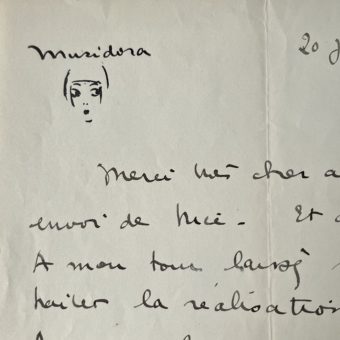 Musidora
20 j
Merci très cher a
envoi de Nice. Et
A mon tour laissez
haiter la réalisation